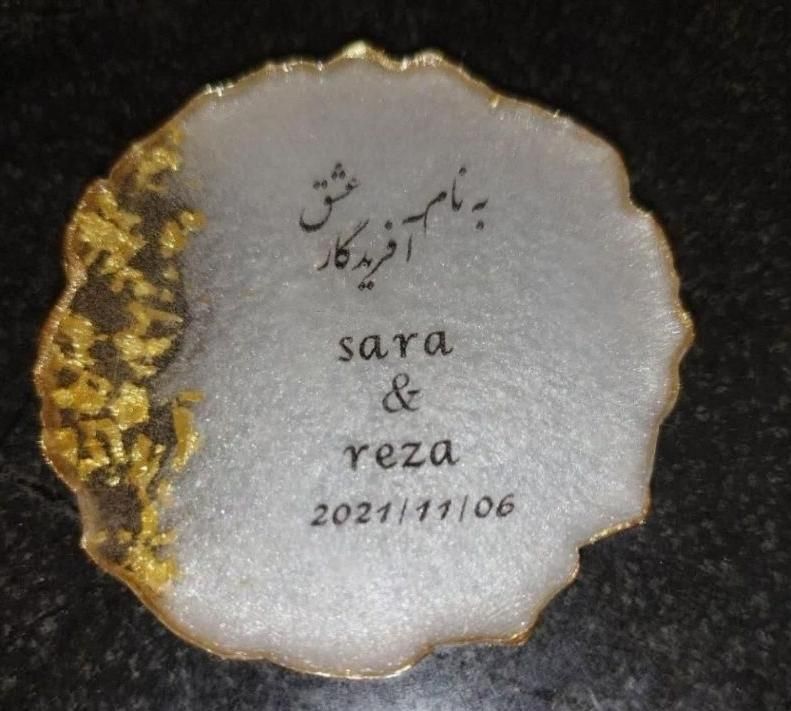 به نام آفریدگار عشق
sara
&
reza
2021/11/06